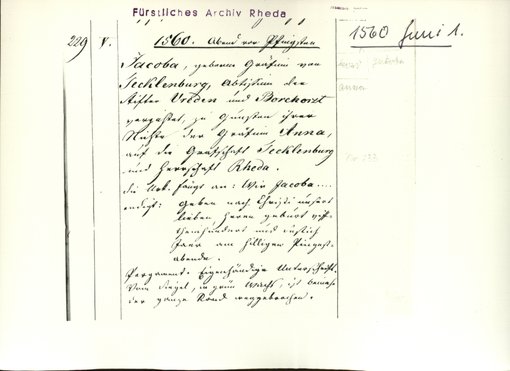 Fürstliches Archiv Rheda
229 V. 1560. Abend vor Pfingsten
1560 Juni 1.
Jacoba, geborene Gräfin von
Tecklenburg, Abtissin der
Stifter Vreden und Borchorst
verzichtet, zu Gunsten ihrer
Nichte der Gräfin Anna,
auf die Grafschaft Tecklenburg
und Herrschaft Rheda.
die Urk. fängt an: Wir Jacoba....
endigt: Geben nach Christi unsers
lieben Heren geburt
und
Jaer am hilligen Pingest-
abende.
Pergament. Eigenhändige Unterschrift.
Vom Siegel, in grün Wachs, ist beinahe
der ganze Rand weggebrochen.